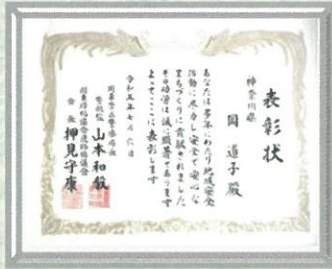 表彰状
神奈川県
岡道子殿
あなたは多年にわたり地域安全
活動に尽力し安全で安心な
まちづくりに貢献されました
その功労は誠に顕著であります
よってここに表彰します
令和五年七月六日
関東管区警察局長
警視監 山本和毅
関東防犯協会連絡協議会
会長 押見守康